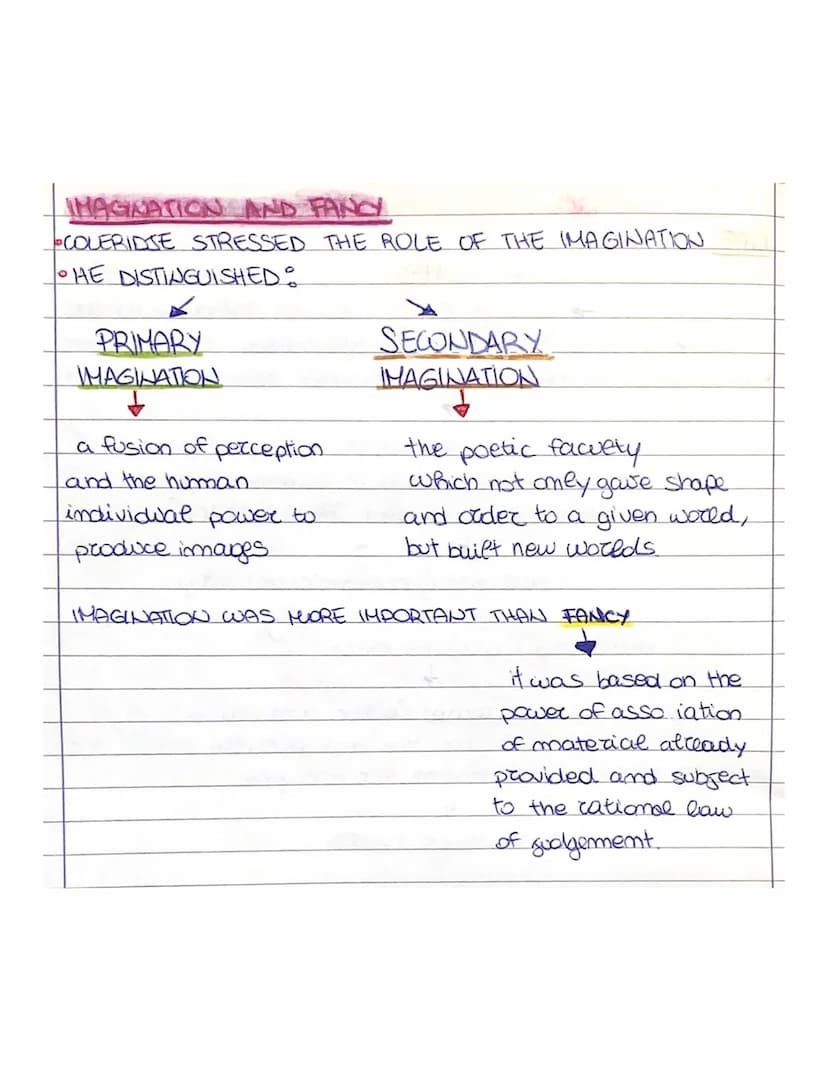 IMAGINATION AND FANCY
•COLERIDGE STRESSED THE ROLE OF THE IMAGINATION
•HE DISTINGUISHED:
PRIMARY
IMAGINATION
a fusion of perception
and the human
individual power to
produce images
SECONDARY
IMAGINATION
the poetic faculty
which not only gave shape
and order to a given world,
but built new worlds
IMAGINATION WAS MORE IMPORTANT THAN FANCY
it was based on the
power of asso iation
of material already
provided and subject
to the rational law
of judgement.